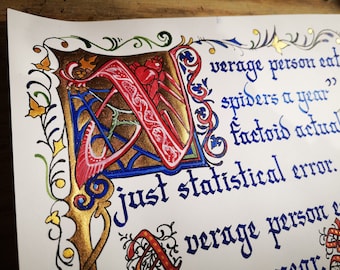 Average person eat
spiders a year”
factoid actual
just statistical error.
average person e
year.